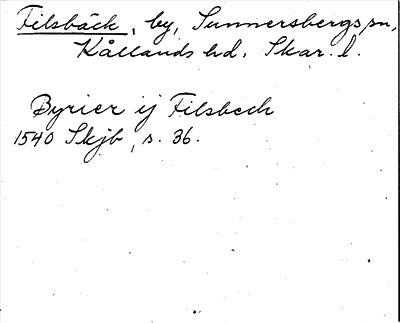 Filsbäck, by, Sunnersbergs sn,
Kållands hd. Skar. l.
Byrier ij Filsbeck
1540 Skjb, s. 36.